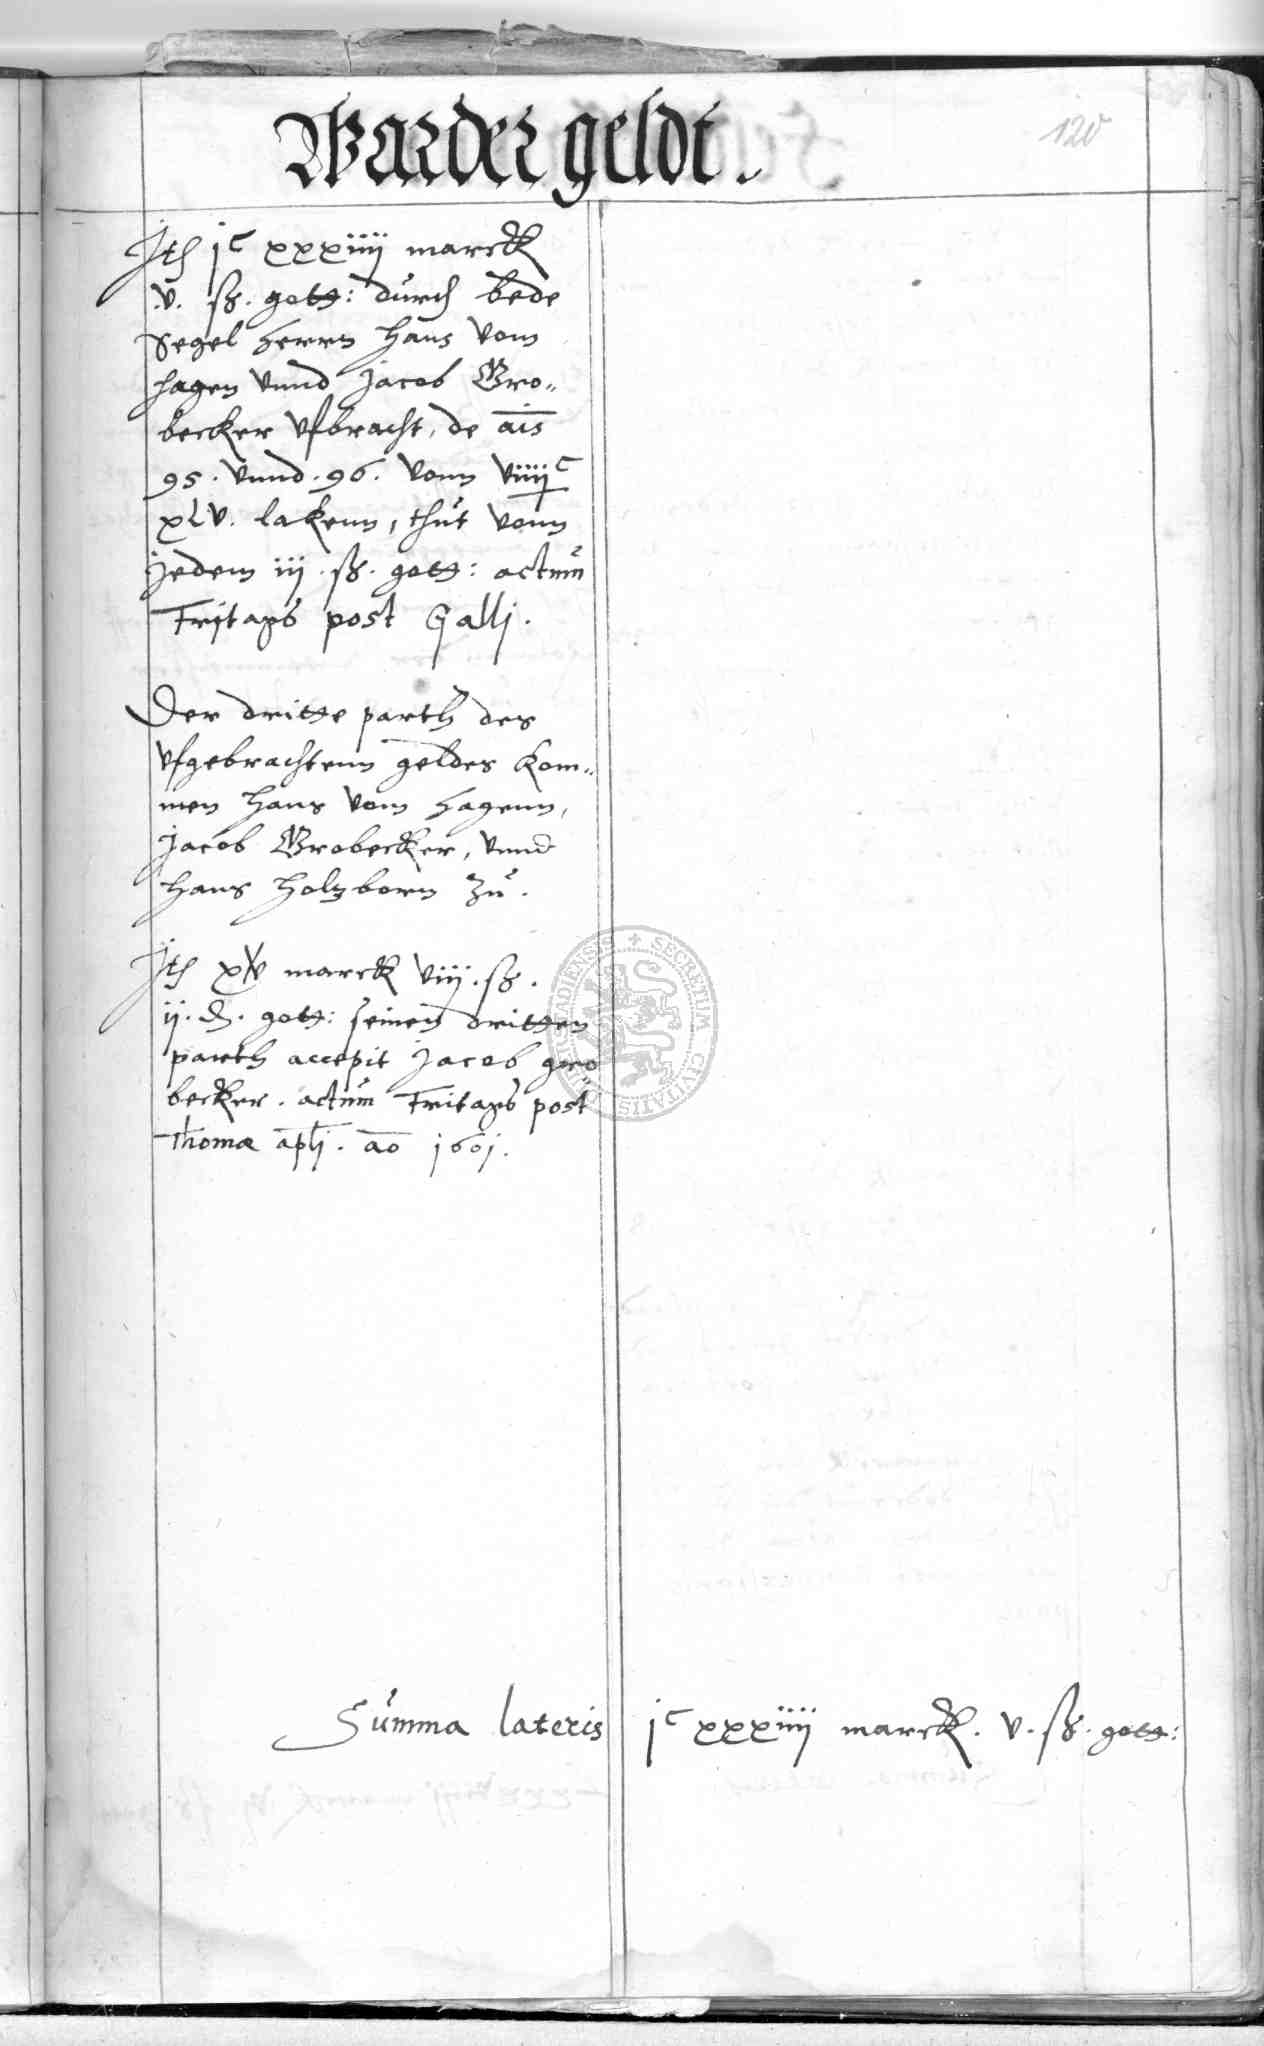 Warder geldt.
120
Jtem jᶜ xxxiiij marck
.v. ß. gott: durch bede
Segel herrn Hans vom
Hagen vnnd Jacob Gro„
becker vfbracht, de aīs
95. vnnd .96. vonn viiijᶜ
xlv. lakenn, thut vonn
jedem iij .ß. gott: actum
Fritags post Galli.
Der dritte parth des
vfgebrachtenn geldes kom„
men Hans vom Hagenn,
Jacob Grobecker, vnnd
Hans Holtzborn zu.
Jtem marck viiij .ß.
ij. d. gott: seinen dritten
parth accepit Jacob gro„
becker. actum Fritags post
Thomæ apli. ao 1601.
SECRETUM CIVITATIS
Summa lateris jᶜ xxxiiij marck. v. ß. gott: